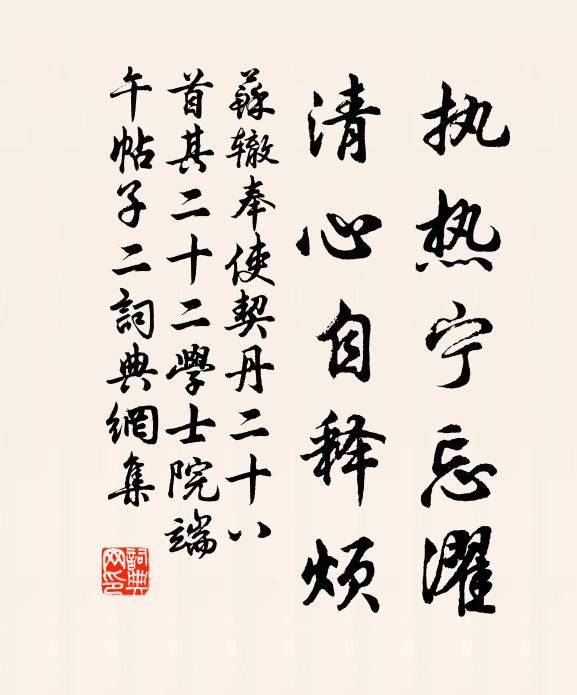 执热宁忘濯
清心自释烦
蘇辙奉使契丹二十八
首其二十二學士院端
午帖子二詞典網集
詞典网印